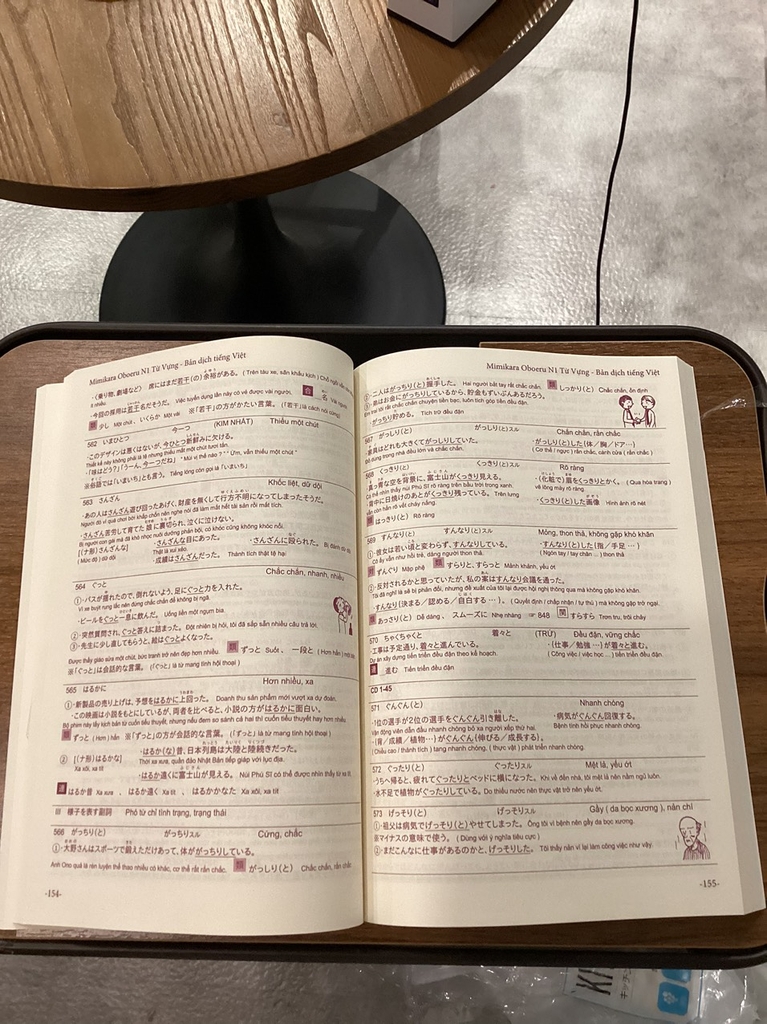 Mimikara Oboeru N1 Từ Vựng - Bản dịch tiếng Việt
・(乗り物、劇場など) 席にはまだ若干(の)余裕がある。(Trên tàu xe, sân khấu kịch) Chỗ ngồi vẫn
ít nhiều.
・今回の採用は若干名だそうだ。 Việc tuyển dụng lần này có vẻ được vài người. 合 _名 Vài người
類 少し Một chút 、いくらか Một vài ※「若干」の方がかたい言葉。(「若干」là cách nói cứng)
562 いまひとつ 今一つ (KIM NHẤT) Thiếu một chút
・このデザインは悪くはないが、今ひとつ新鮮みに欠ける。
Thiết kế này không phải là tệ nhưng thiếu mất một chút tươi tắn.
・「味はどう?」「うーん、今一つだね」 " Mùi vị thế nào ? " " Ừm, vẫn thiếu một chút "
※俗語では「いまいち」とも言う。 Tiếng lóng còn gọi là「いまいち」
563 さんざん Khốc liệt, dữ dội
・あの人はさんざん遊び回ったあげく、財産を無くして行方不明になってしまったそうだ。
Người đó vì quá chơi bời khắp chốn nên nghe nói đã làm mất hết tài sản rồi mất tích.
・さんざん苦労して育てた娘に裏切られ、泣くに泣けない。
[(ナ形) さんざんな] ・さんざんな目にあった。 ・さんざんに殴られた。 Bị đánh dữ dội
(Mức độ) dữ dội Thật là xui xẻo.
・成績はさんざんだった。 Thành tích thật tệ hại
564 ぐっと Chắc chắn, nhanh, nhiều
①・バスが揺れたので、倒れないよう、足にぐっと力を入れた。
Vì xe buýt rung lắc nên đứng chắc chân để không bị ngã.
・ビールをぐっと一息に飲んだ。 Uống liền một ngụm bia.
②・突然質問され、ぐっと答えに詰まった。 Đột nhiên bị hỏi, tôi đã sắp sẵn nhiều câu trả lời.
③・先生に少し直してもらうと、絵はぐっとよくなった。
Được thầy giáo sửa một chút, bức tranh trở nên đẹp hơn nhiều. 類 ずっと Suốt 、一段と (Hơn hẳn) một bậc
※「ぐっと」は会話的な言葉。 (「ぐっと」là từ mang tính hội thoại)
565 はるかに Hơn nhiều, xa
①・新製品の売り上げは、予想をはるかに上回った。 Doanh thu sản phẩm mới vượt xa dự đoán.
・この映画は小説をもとにしているが、両者を比べると、小説の方がはるかに面白い。
Bộ phim này lấy kịch bản từ cuốn tiểu thuyết, nhưng nếu đem so sánh cả hai thì cuốn tiểu thuyết thú vị hơn nhiều.
類 ずっと (Hơn) hẳn ※「ずっと」の方が会話的な言葉。 (「ずっと」là từ mang tính hội thoại)
② [(ナ形) はるかな] ・はるか(な)昔、日本列島は大陸と陸続きだった。
Xa xôi, xa tít Thời xa xưa, quần đảo Nhật Bản tiếp giáp với lục địa.
・はるか遠くに富士山が見える。 Núi Phú Sĩ có thể được nhìn thấy từ xa tít
連 はるか昔 Xa xưa 、はるか遠く Xa tít 、はるかかなた Xa xôi, xa tít
III 様子を表す副詞 Phó từ chỉ tình trạng, trạng thái
566 がっちり(と) がっちりスル Cứng, chắc
①・大野さんはスポーツで鍛えただけあって、体ががっちりしている。
Anh Ono quả là rèn luyện thể thao nhiều có khác, cơ thể rất rắn chắc. 類 がっしり(と) Chắc chắn, rắn chắc
-154-
Mimikara Oboeru N1 Từ Vựng - Bản dịch tiếng Việt
②・二人はがっちり(と)握手した。 Hai người bắt tay rất chắc chắn. 類 しっかり(と) Chắc chắn, ổn định
③・弟はお金にがっちりしているから、貯金もずいぶんあるだろう。
Em trai tôi rất chắc chắn chuyện tiền bạc, luôn tích góp tiền đều đặn.
・がっちり貯める。 Tích trữ đều đặn
567 がっしり(と) がっしり(と)スル Chắn chắn, rắn chắc
・家具はどれも大きくてがっしりしていた。 ・がっしり(と)した(体/胸/ドア…)
Đồ dùng trong nhà đều lớn và chắc chắn. (Cơ thể / ngực ) rắn chắc, cánh cửa ( rắn chắc )
568 くっきり(と) くっきり(と)スル Rõ ràng
・真っ青な空を背景に、富士山がくっきり見える。 ・(化粧で)眉をくっきりとかく。 ( Qua hóa trang )
Có thể nhìn thấy núi Phú Sĩ rõ ràng trên bầu trời trong xanh. vẽ lông mày rõ ràng.
・背中に日焼けのあとがくっきり残っている。 Trên lưng ・くっきり(と)した画像 Hình ảnh rõ nét
vẫn còn hằn rõ vết cháy nắng.
類 はっきり(と) Rõ ràng
569 すんなり(と) すんなり(と)スル Mỏng, thon thả, không gặp khó khăn
①・彼女は若い頃と変わらず、すんなりしている。 ・すんなり(と)した(指/手足…)
Cô ấy vẫn như hồi trẻ, dáng người thon thả. ( Ngón tay/ tay chân ... ) thon thả
対 ずんぐり Mập phệ 類 すらりと、すらっと Mảnh khảnh, yểu ớt
②・反対されるかと思っていたが、私の案はすんなり会議を通った。
Tôi đã nghĩ là sẽ bị phản đối, nhưng đề xuất của tôi lại được hội nghị thông qua mà không gặp khó khăn.
・すんなり(決まる/認める/自白する…)。 ( Quyết định / chấp nhận / tự thú ) mà không gặp trở ngại.
類 あっさり(と) Dễ dàng 、スムーズに Nhẹ nhàng ☞ 848 関 すらすら Trơn tru, trôi chảy
570 ちゃくちゃくと 着々と (TRỨ) Đều đặn, vững chắc
・工事は予定通り、着々と進んでいる。 ・(仕事/勉強…)が着々と進む。
Dự án xây dựng tiến triển đều đặn theo kế hoạch. ( Công việc / việc học ... ) tiến triển đều đặn.
連 _進む Tiến triển đều đặn
CD 1-45
571 ぐんぐん(と) Nhanh chóng
・1位の選手が2位の選手をぐんぐん引き離した。 ・病気がぐんぐん回復する。
Vận động viên dẫn đầu nhanh chóng bỏ xa người xếp thứ hai. Bệnh tình hồi phục nhanh chóng.
・(背/成績/植物…)がぐんぐん(伸びる/成長する)。
( Chiều cao / thành tích ) tăng nhanh chóng. ( thực vật ) phát triển nhanh chóng.
572 ぐったり(と) ぐったりスル Mệt lả, yếu ớt
・うちへ帰ると、疲れてぐったりとベッドに横になった。 Khi về đến nhà, tôi mệt lả nên nằm ngủ luôn.
・水不足で植物がぐったりしている。 Do thiếu nước nên thực vật trở nên yếu ớt.
573 げっそり(と) げっそりスル Gầy ( da bọc xương ), nản chí
①・祖父は病気でげっそり(と)やせてしまった。 Ông tôi vì bệnh nên gầy da bọc xương.
※マイナスの意味で使う。 ( Dùng với ý nghĩa tiêu cực )
②・まだこんなに仕事があるのかと、げっそりした。 Tôi thấy nản vì lại làm công việc như vậy.
-155-